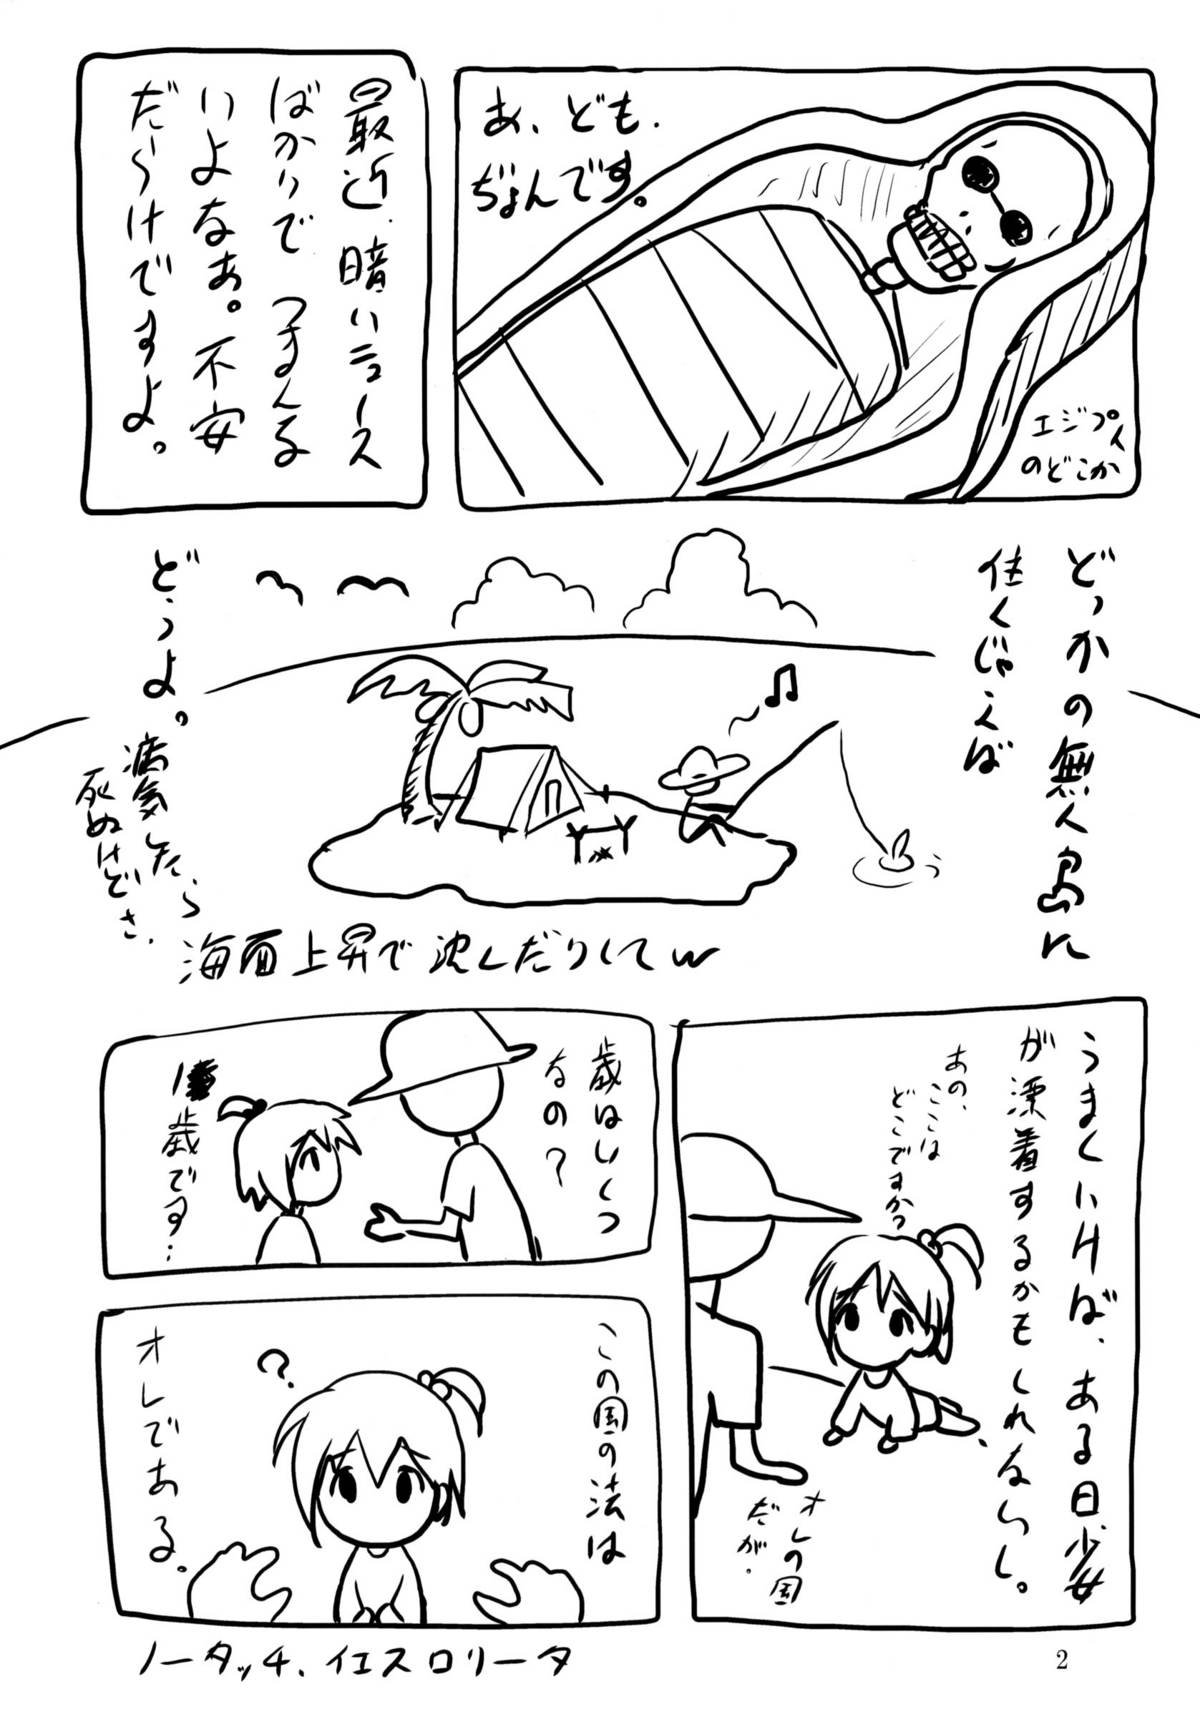 あ、ども.
ぢょんです。
エジプト
のどこか
最近、暗いニュース
ばかりで つまんる
いよなぁ。不安
だらけですよ。
どっかの無人島に
住くじゃえば
どうよ。
病気したら
死ぬけどさ、
海面上昇で沈しだりしてw
うまくいけば、ある日少女
が漂着するかもしれないし。
あの、
ここは
どこですかっ
オレの国
だが.
歳はいくつ
なの?
歳です…
この国の法は
オレである。
?
ノータッチ、イエスロリータ
2